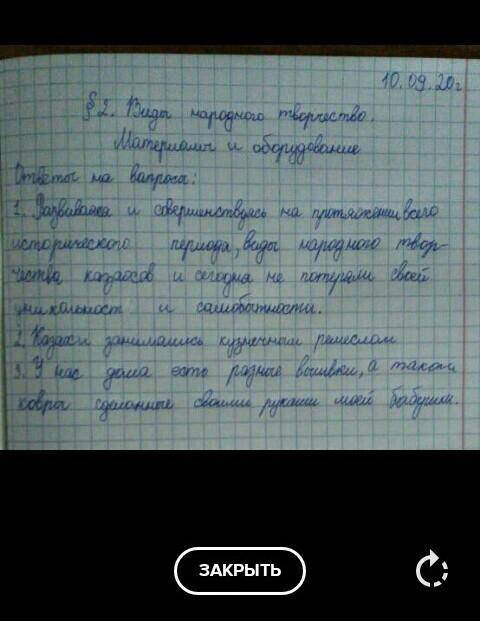 10.09.20г
§2. Виды народного творчество.
Материалы и оборудование
Ответы на вапросы:
1. Развиваяка и совершенствуясь на протяжении всего
исторического периода, виды народного твор-
чества казахов и сегодня не потеряли своей
уникальност и самобытности.
2. Казахи занимались кузнечным ремеслом
3. У нас дома есть разные вышивки, а также
ковры сделанные своими руками моей бабушки.
ЗАКРЫТЬ